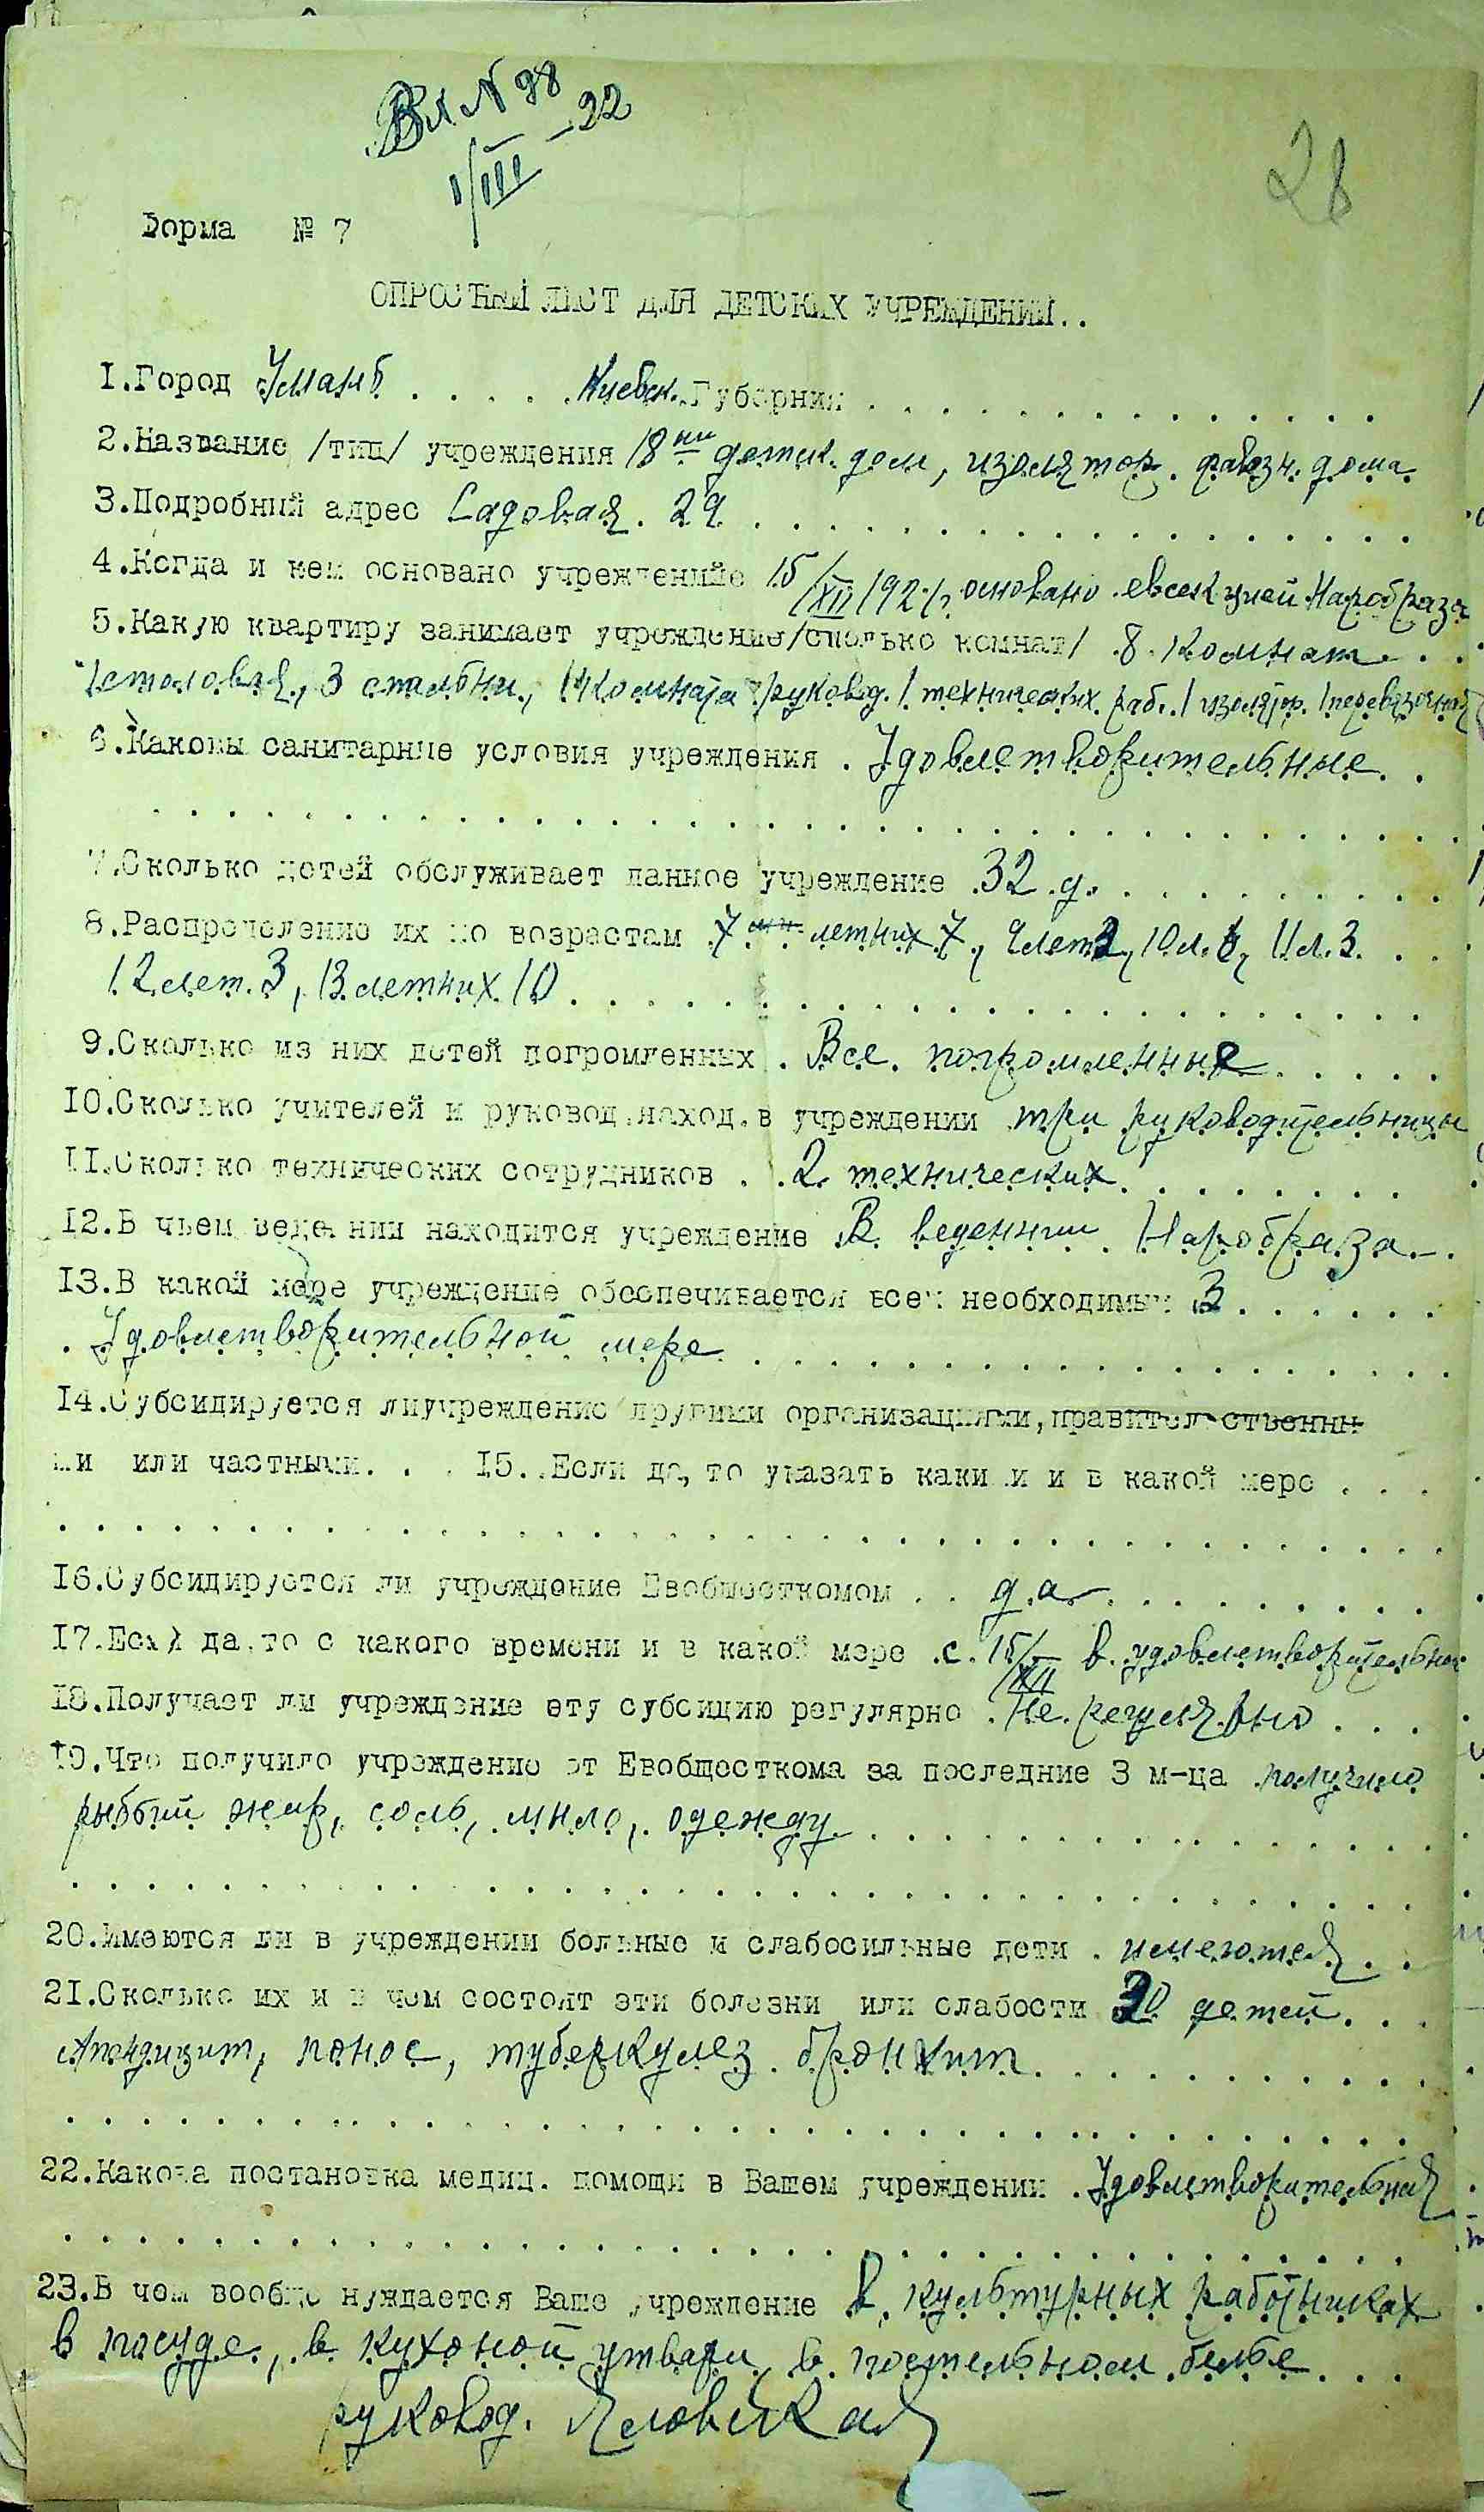 Вх N 98
1/III – 22
28
Форма № 7
ОПРОСНЫЙ ЛИСТ ДЛЯ ДЕТСКИХ УЧРЕЖДЕНИЙ..
1.Город Умань . . . . . Киевск. Губерния . . . . . . . . . . . . . .
2.Название /тип/ учреждения 18ый детск. дом, изолятор. дома.
3.Подробний адрес Садовая. 29 . . . . . . . . . . . . . . . . . .
4.Когда и кем основано учреждениие 15/XII 1921 г. основано евсекцией Наробраза
5.Какую квартиру занимает учреждение/сколько комнат/ .8. комнат. . .
1 столовая, 3 спальни, 1 комната руковод. 1 технических раб. 1 изолятор. 1 перевязочная
6.Каковы санитарные условия учреждения . Удовлетворительные. .
. . . . . . . . . . . . . . . . . . . . . . . . . . . . .
7.Сколько детей обслуживает данное учреждение .32 .д. . . . . . . . . .
8.Распределение их по возрастам 7 летних 7, 9 лет 3, 10 л. 6, 11 л. 3. . .
12 лет. 3, 13 летних 10 . . . . . . . . . . . . . . . . . . . .
9.Сколько из них детей погромленных . Все. погромленные . . . . .
10.Сколько учителей и руковод.наход.в учреждении три руководительницы
11.Сколько технических сотрудников . .2. технических. . . . . . . .
12.В чьем ведении находится учреждение В ведении Наробраза. .
13.В какой мере учреждение обеспечивается всем необходимым В . . . . . .
. Удовлетворительной мере. . . . . . . . . . . . . . . . .
14.Субсидируется лиучреждение другими организациями,правительственны
ми или частными. . . 15. .Если да, то указать какими и в какой мере . . .
. . . . . . . . . . . . . . . . . . . . . . . . . . . . .
16.Субсидируется ли учреждение Евобщесткомом . . да . . . . . . . . . .
17.Если да,то с какого времени и в какой мере .с. 15/XII в удовлетворительной
18.Получает ли учреждение эту субсидию регулярно . Не регулярно . . .
19.Что получило учреждение от Евобщесткома за последние 3 м-ца получило
рыбий жир, соль, мыло, одежду. . . . . . . . . . . . . . .
. . . . . . . . . . . . . . . . . . . . . . . . . . . . .
20.Имеются ли в учреждении больные и слабосильные дети . имеются. .
21.Сколько их и в чем состоят эти болезни или слабости 20 детей. . .
Апендицит, понос, туберкулез. бронхит. . . . . . . . . . . .
. . . . . . . . . . . . . . . . . . . . . . . . . . . . .
22.Какова постановка медиц. помощи в Вашем учреждении . Удовлетворительная
. . . . . . . . . . . . . . . . . . . . . . . . . . . . .
23.В чем вообще нуждается Ваше учреждение В культурных работниках
в посуде, в кухоной утвари, в постельном белье . . .
руковод.